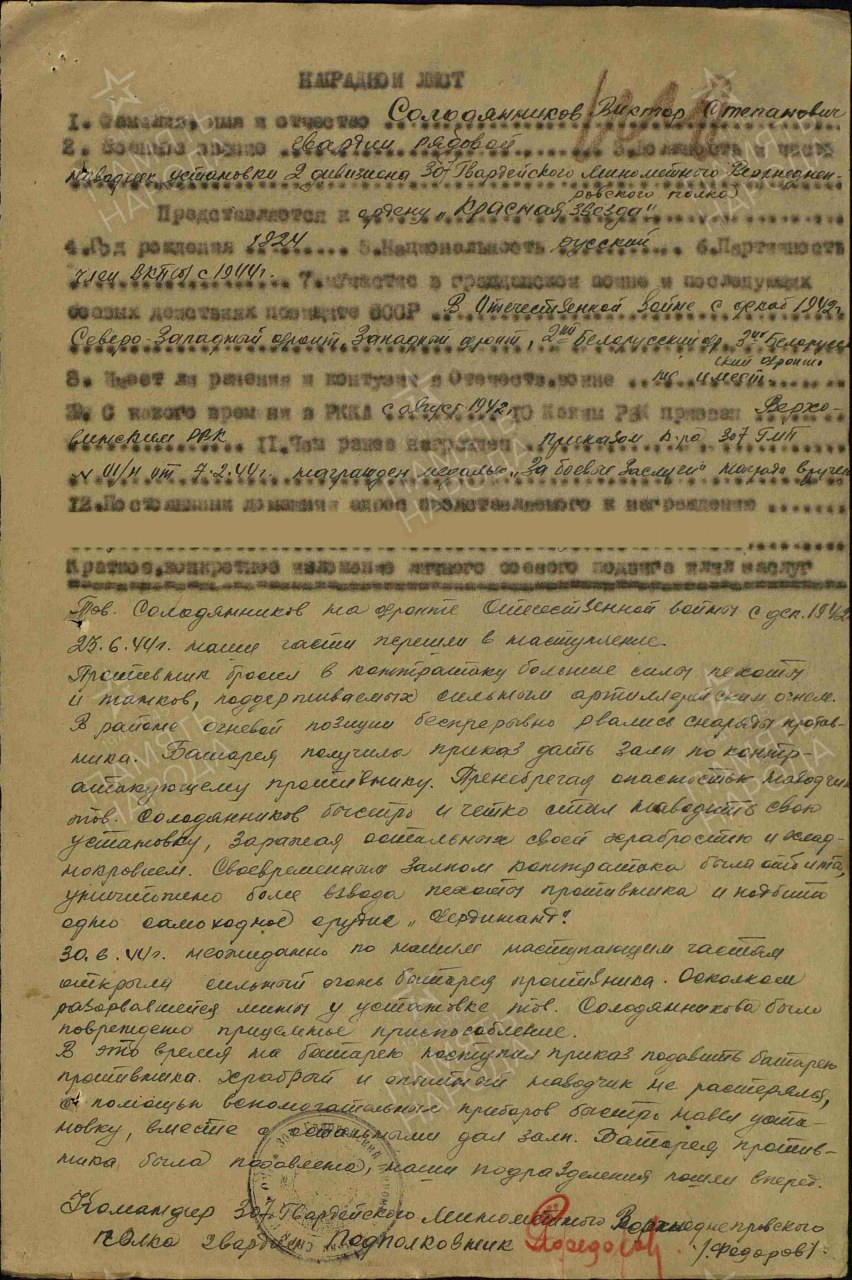 НАГРАДНОЙ ЛИСТ
1. Фамилия, имя и отчество Солодянников Виктор Степанович
2. Военное звание гвардии рядовой 3. Должность и часть
наводчик установки 2 дивизиона 307 Гвардейского Минометного Верхнеднеп-
ровского полка
Представляется к ордену „Красная Звезда"
4. Год рождения 1924 5. Национальность русский 6. Партийность
член ВКП(б) с 1944г. 7. Участие в гражданской войне и последующих
боевых действиях по защите СССР В Отечественной войне с 1942г
Северо-Западный фронт, Западный фронт, 2ой Белорусский фр. 3ий Белорус-
ский фронт
8. Имеет ли ранения и контузии в Отечеств. войне не имеет
9. С какого времени в РККА с август 1942г 10 Каким РВК призван Верхо-
винским РВК 11. Чем ранее награжден приказом к-ра 307 ГМП
N 01/н от 7.2.44г. награжден медалью „За боевые заслуги" награда вручен
12. Постоянный домашний адрес представляемого к награждению
Краткое, конкретное изложение личного боевого подвига или заслуг
Тов. Солодянников на фронте Отечественной войны с дек. 1942
23.6.44г. наши части перешли в наступление.
Противник бросил в контратаку большие силы пехоты
и танков, поддерживаемых сильным артиллерийским огнем.
В районе огневой позиции беспрерывно рвались снаряды против-
ника. Батарея получила приказ дать залп по контр-
атакующему противнику. Пренебрегая опасностью наводчик
тов. Солодянников быстро и четко стал наводить свою
установку, заражая остальных своей храбростью и хлад-
нокровием. Своевременным залпом контратака была отбита,
уничтожено более взвода пехоты противника и подбито
одно самоходное орудие „Фердинанд".
30.6.44г. неожиданно по нашим наступающим частям
открыла сильный огонь батарея противника. Осколком
разорвавшейся мины у установке тов. Солодянникова было
повреждено прицельное приспособление.
В это время на батарею поступил приказ подавить батарею
противника. Храбрый и опытный наводчик не растерялся,
с помощью вспомогательных приборов быстро навел уста-
новку, вместе с остальными дал залп. Батарея против-
ника была подавлена, наши подразделения пошли вперед.
Командир 307 Гвардейского Минометного Верхнеднепровского
полка гвардии Подполковник /Федоров/
ПАМЯТЬ НАРОДА